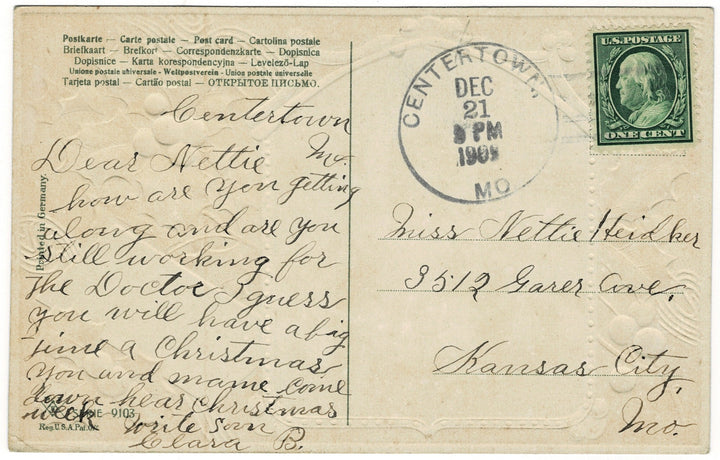 Postkarte — Carte postale — Post card — Cartolina postale
Briefkaart — Brefkort — Correspondenzkarte — Dopisnica
Dopisnice — Karta korespondencyjna — Levelező-Lap
Unione postale universale - Weltpostverein - Union postale universelle
Tarjeta postal — Cartão postal — ОТКРЫТОЕ ПИСЬМО.
Centertown
Mo.
Dear Nettie
how are you getting
along and are you
still working for
the Doctor I guess
you will have a big
time a Christmas
You and mame come
down hear Christmas
week
write soon
Clara B.
Printed in Germany.
SERIE 9103
Reg. U.S.A. Pat. Off.
CENTERTOWN,
DEC
21
PM
190
MO
U.S. POSTAGE
ONE CENT
Miss Nettie Heidker
3512 Garer Cove,
Kansas City,
Mo.